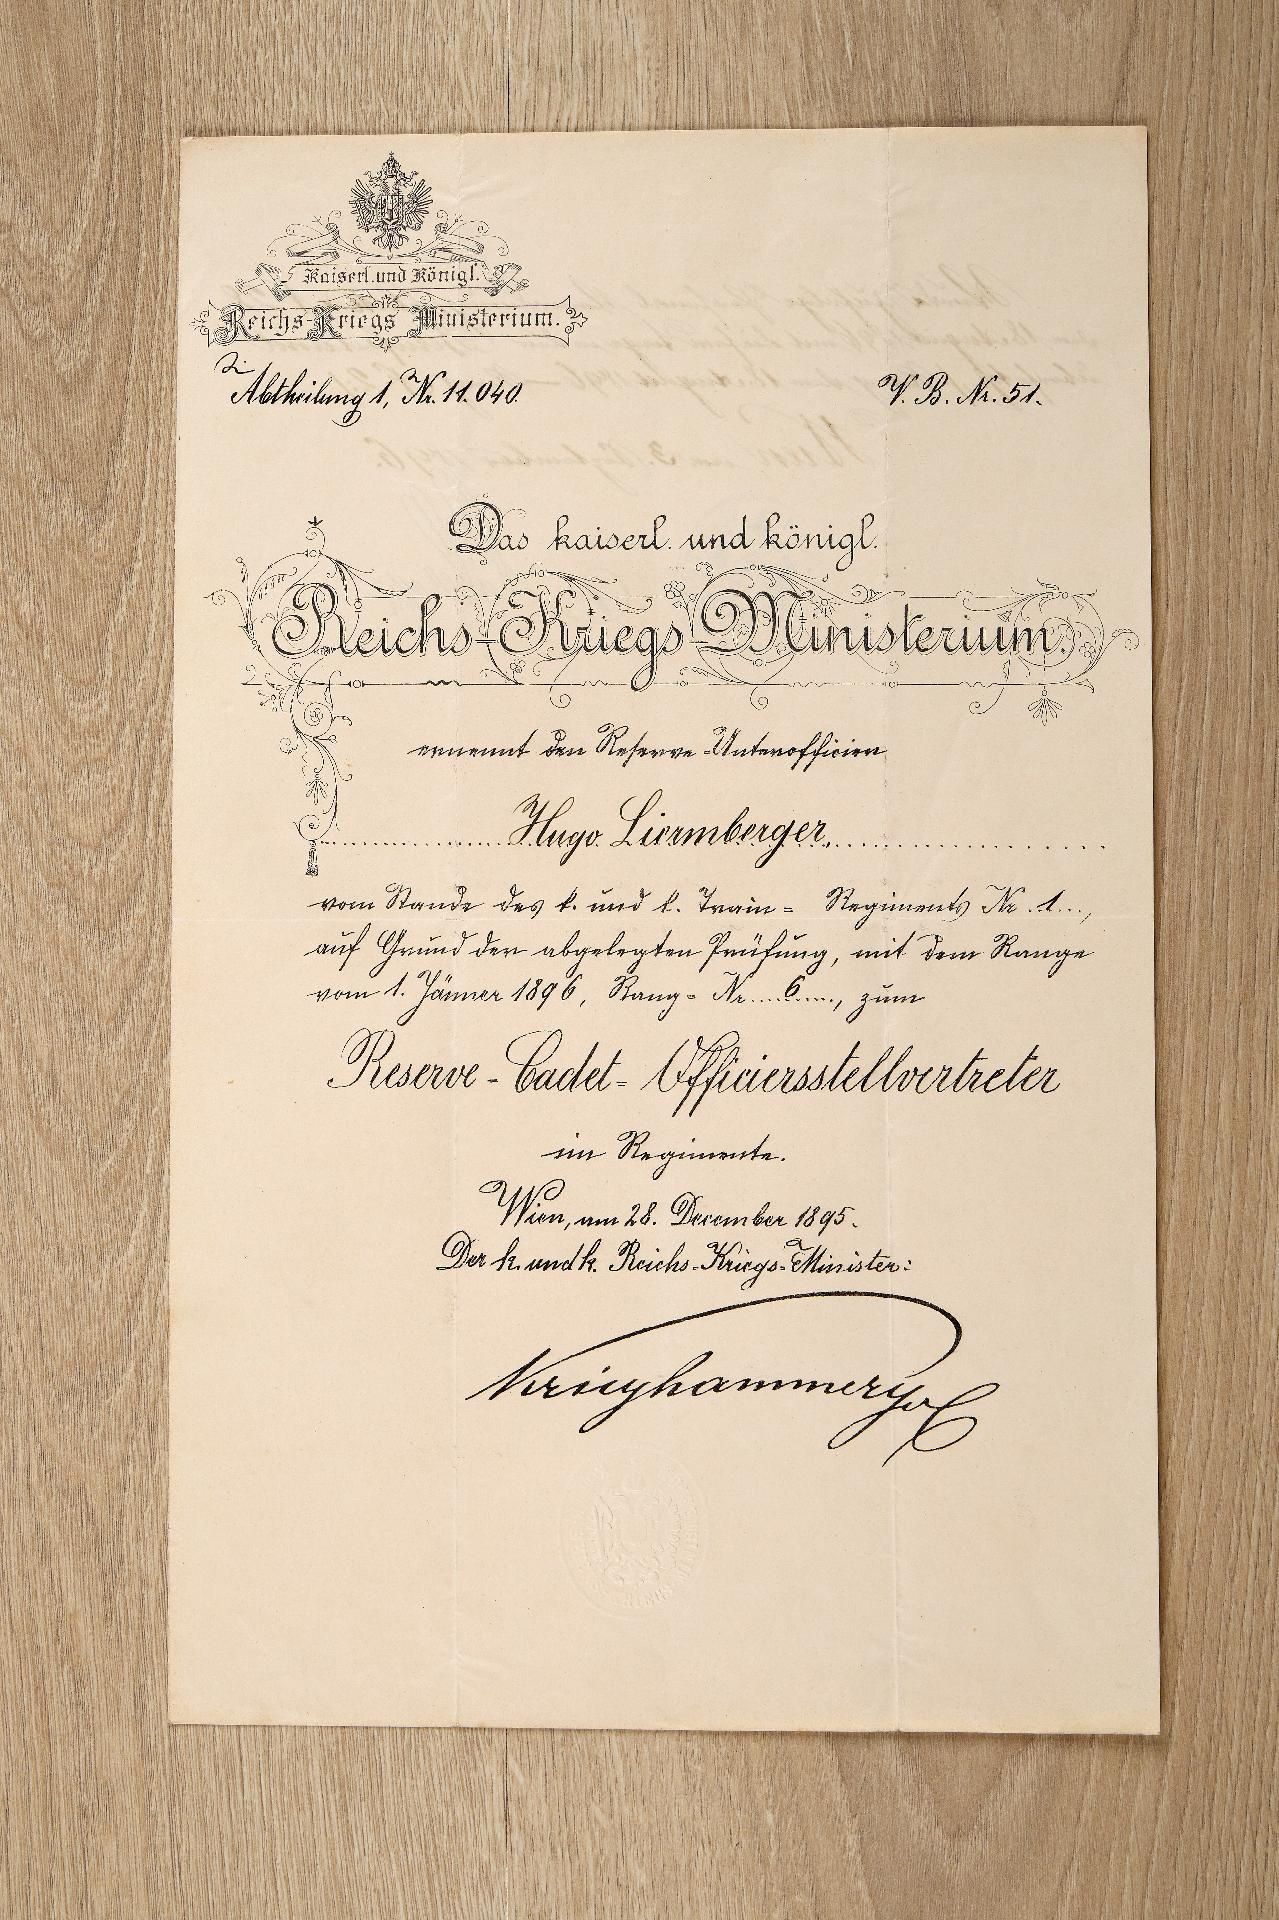 Kaiserl. und Königl.
Reichs-Kriegs Ministerium.
Zu
Abtheilung 1, Nr. 11.040.
V. B. Nr. 51.
Das kaiserl. und königl.
Reichs-Kriegs-Ministerium
ernennt den Reserve-Unterofficier
Hugo Liermberger
vom Stande des k. und k. Train= Regiments Nr. 1...,
auf Grund der abgelegten Prüfung, mit dem Range
vom 1. Jänner 1896, Rang= Nr....6...., zum
Reserve-Cadet-Officiersstellvertreter
im Regimente.
Wien, am 28. December 1895.
Der k. und k. Reichs-Kriegs-Minister:
Krieghammer